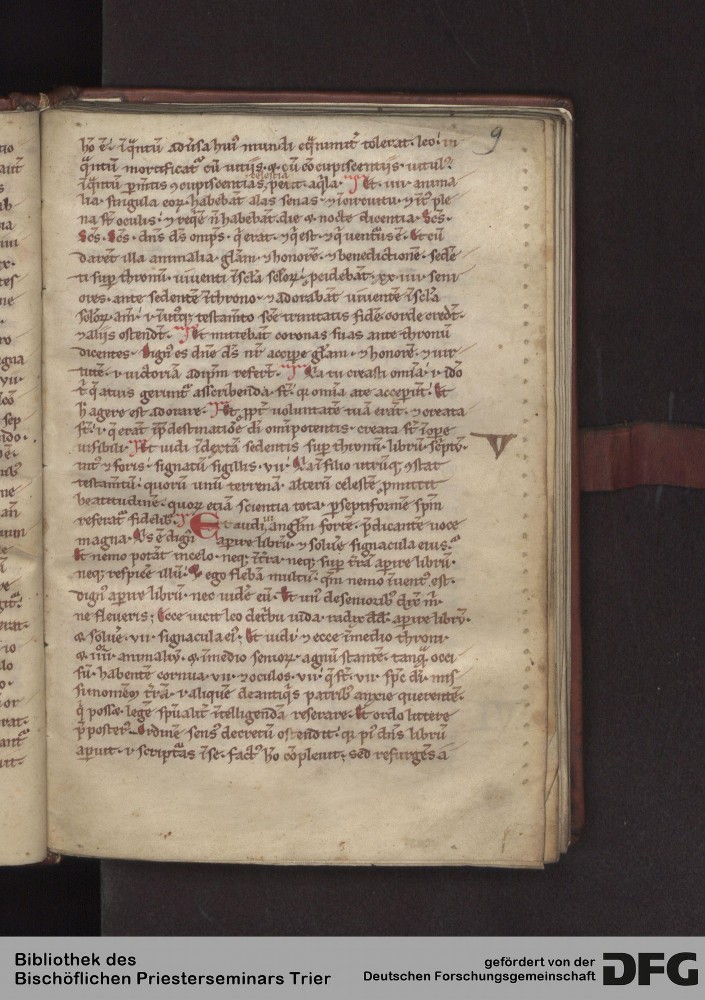 9
h̄o ē. īqͣntū adūsa huiꝰ mundi eqͣnimit̄ tolerat. leo. in
qͣntū mortificatͬ cū uitiis. & cū cōcupiscentiis. uitulꝰ.
celestia
īqͣntū ꝯcupiscentias, petit. aqͥla. Et. iiii. anima
lia. singula eoꝝ. habebāt alas senas. & ī circuitu. & īt̄ ple
na st̄ oculis. & reqͥē n̄ habebāt. die & nocte dicentia. Sc̄s.
Sc̄s. Sc̄s. dn̄s ds̄ omp̄s. qͥ erat. & qͥ est. & qͥ uentūs ē. Et cū
darēt illa animalia. gl̄am. & honorē. & benedictionē. sedē
ti sup̄ thronū. uiuenti īscl̄a scl̄oꝝ. pcidebāt. xx. iiii. seni
ores. ante sedentē īthrono. & adorabāt uiuentē īscl̄a
scl̄oꝝ. am̄. testam̄to sc̄e trinitatis fidē. corde credt̄.
& aliis ostendt̄. Et mittebāt coronas suas ante thronū
dicentes. Dignꝰ es dn̄e ds̄ nr̄. accipe gl̄am. & honorē. & uir
tutē. referr̄. Qͥa tu creasti omīa.
asscribenda. st̄. qi omīa a te accepīt. Et
h̄ agere est adorare. Et ppt̄ voluntatē tuā erāt. & creata
st̄. qͥ erāt īp̄destinatiōe di omīpotentis. creata st̄ īope
uisibili. Et uidi īdext̄a sedentis sup̄ thronū. librū. sc̄ptū.
V
int̄ & foris. signatū sigillis. vii. Qͥa īfilio utrūqꝫ ꝯstat
testam̄tū. quorū unū terrenā. alterū celestē p̄mittit
beatitudinē. quoꝝ etiā scientia tota. p septiformē sp̄m
referatͬ fidelibꝰ. Et audiui, angl̄m fortē. p̄dicante uoce
magna. Qͥs ē dignꝰ aperire librū. & soluē signacula eius.
Et nemo potāt incelo. neqꝫ īt̄ra. neqꝫ sup̄ t̄rā. apire librū.
neqꝫ respicē illū. Et ego flebā multū. qm̄ nemo īuentꝰ est.
dignꝰ apire librū. nec uidē eū. Et unꝰ de senioribꝰ dix̄ m̄.
ne fleueris; Ecce uicit leo de tbu iuda. radix dd̄. apire librū.
& soluē. vii. signacula eiꝰ. Et uidi. & ecce īmedio throni.
& iiii. animaliū. & īmedio senioꝝ. agnū stantē. tanqͣ occi
sū. habentē cornua. vii. & oculos. vii. qͥ st̄. vii. sp̄c di. mis
si īomnem t̄rā. aliquē de antiqͥs patribꝰ anxie querentē.
qͥ posset. legē sp̄ualit̄ ītelligendā reserare. Et ordo littere
p̄posterꝰ. ordinē sensꝰ decretū ostendit. qi pꝰ dn̄s librū
aperuit. & scriptas īse. factꝰ h̄o cōpleuit; sed resurgēs a
Bibliothek des
Bischöflichen Priesterseminars Trier
gefördert von der
Deutschen Forschungsgemeinschaft
DFG